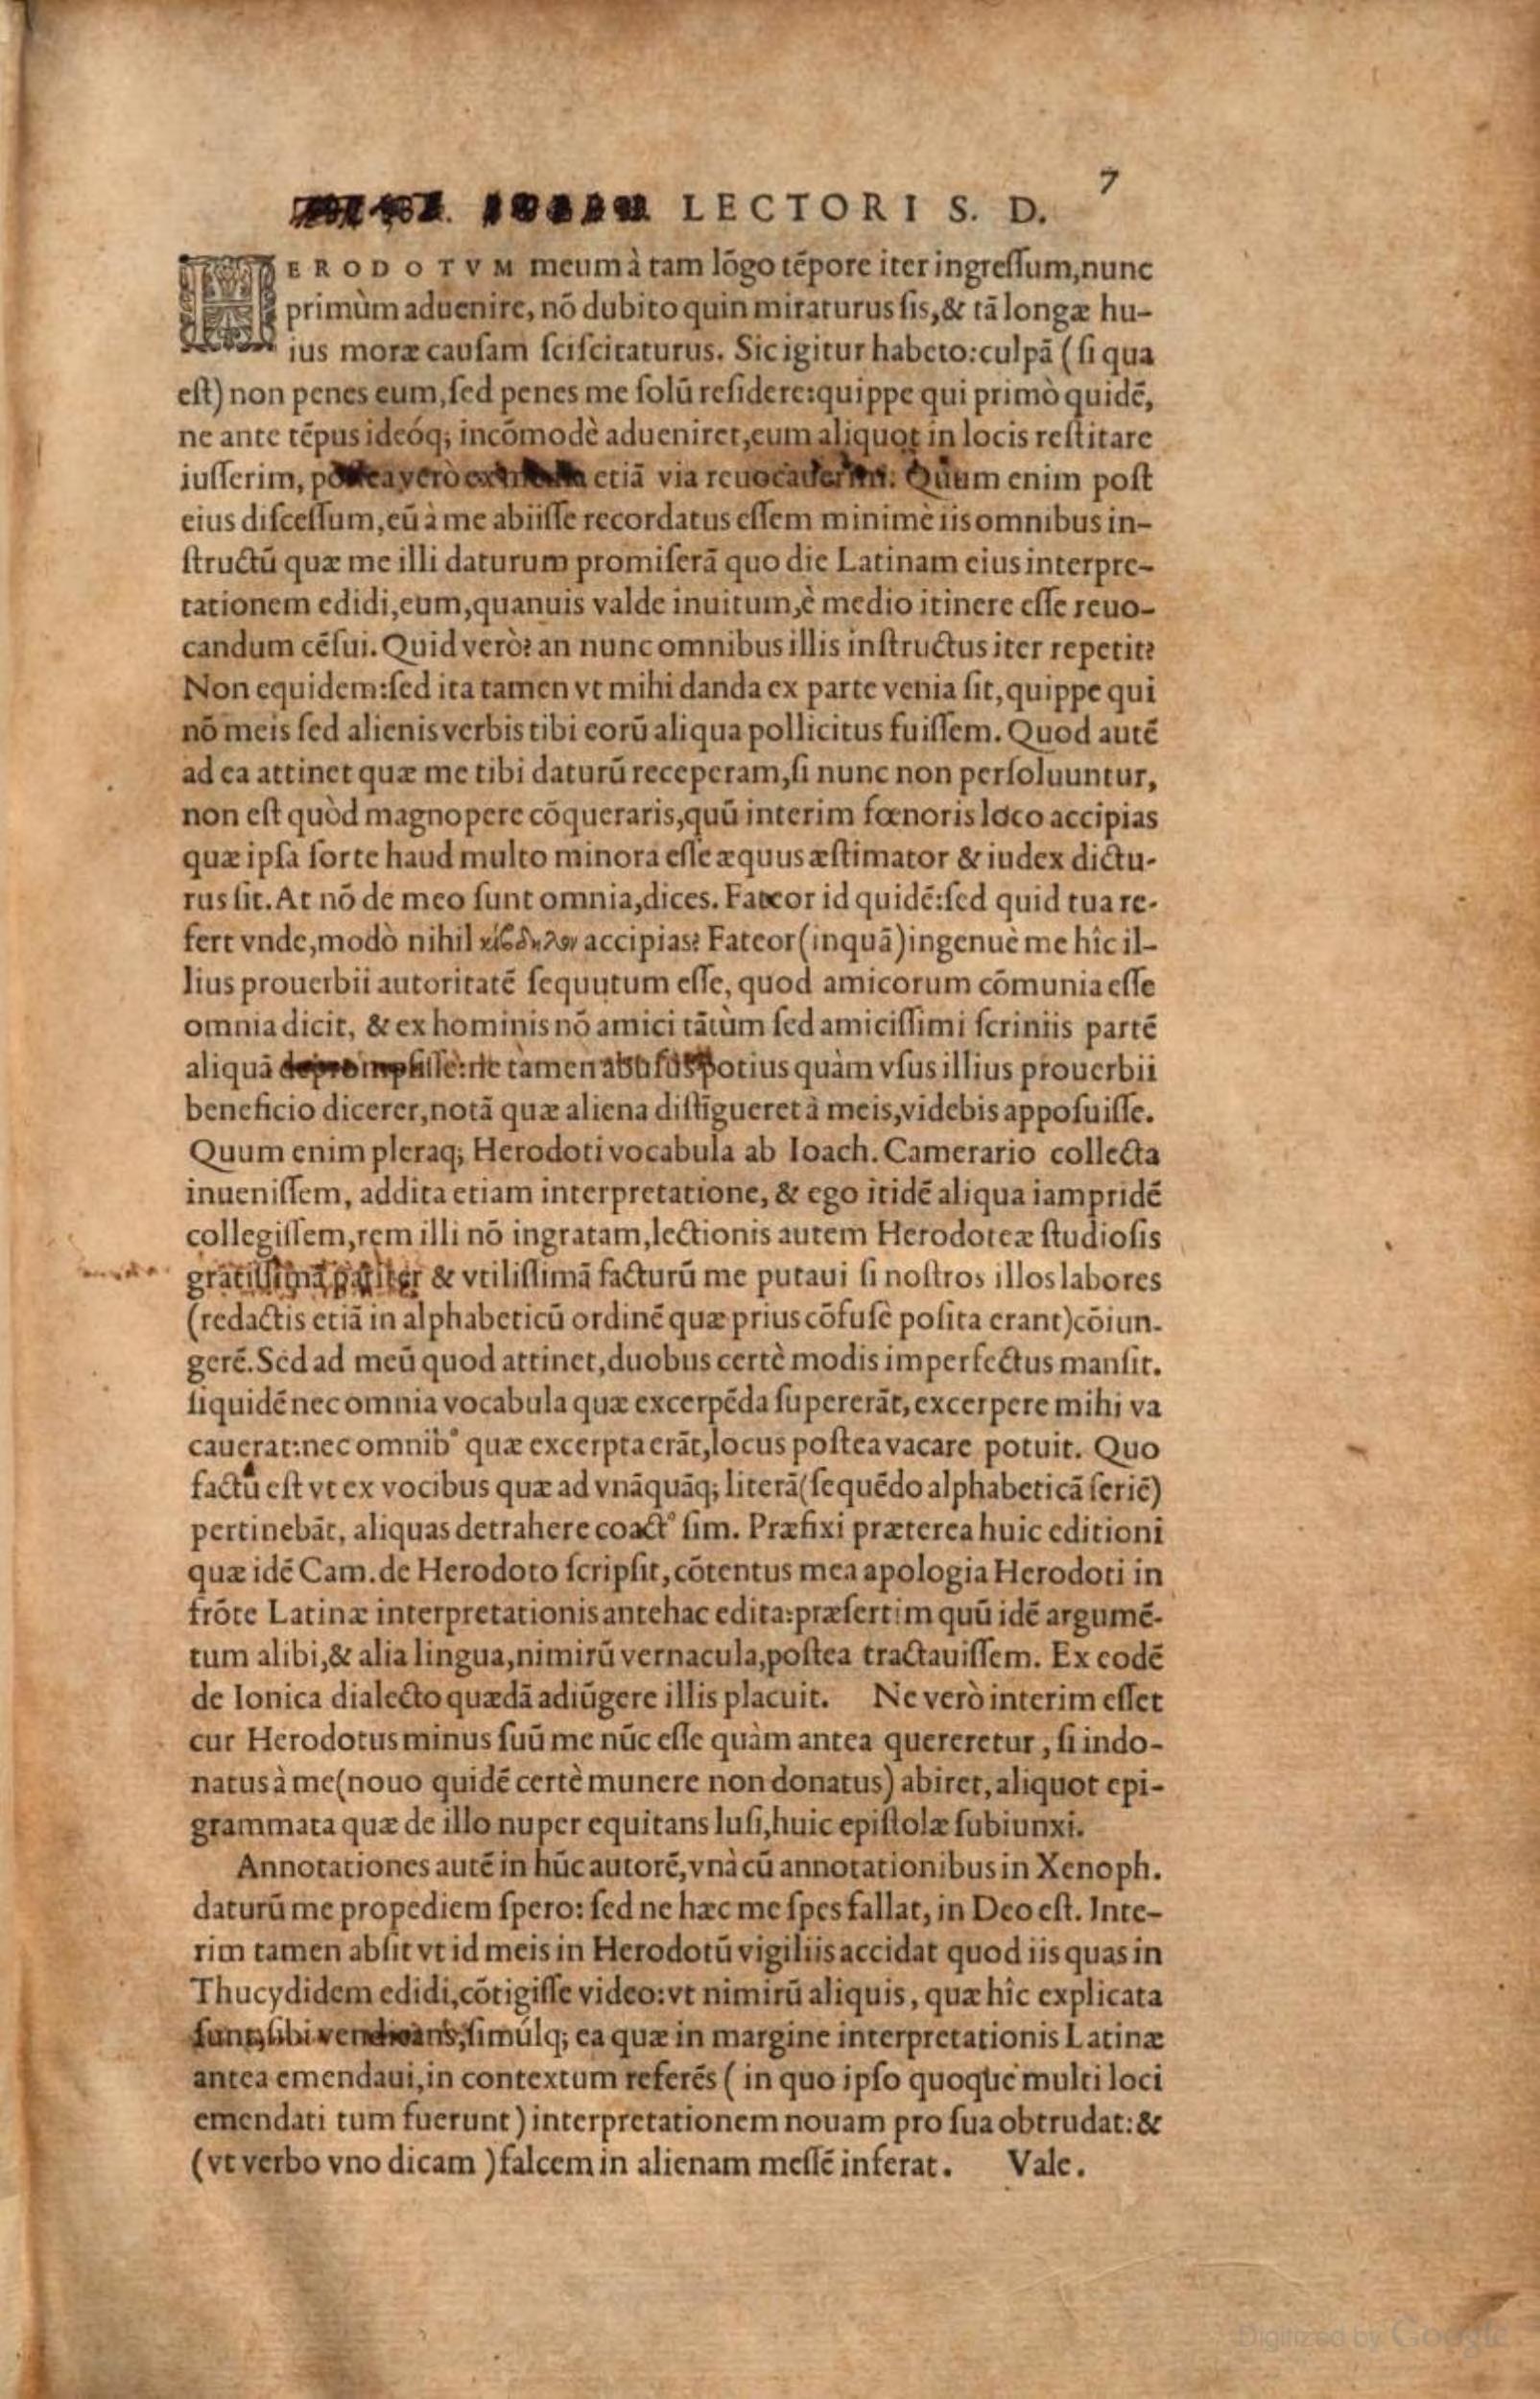 7
LECTORI S. D.
HERODOTVM meum à tam lõgo tẽpore iter ingreſſum,nunc
primùm aduenire, nõ dubito quin miraturus ſis,& tã longæ hu-
ius moræ cauſam ſciſcitaturus. Sic igitur habeto:culpã (ſi qua
eſt) non penes eum,ſed penes me ſolũ reſidere:quippe qui primò quidẽ,
ne ante tẽpus ideóq; incõmodè adueniret,eum aliquot in locis reſtitare
iuſſerim, poſtea verò ex etiã via reuocauerim. Quum enim poſt
eius diſceſſum,eũ à me abiiſſe recordatus eſſem minimè iis omnibus in-
ſtructũ quæ me illi daturum promiſerã quo die Latinam eius interpre-
tationem edidi,eum,quanuis valde inuitum,è medio itinere eſſe reuo-
candum cẽſui. Quid verò? an nunc omnibus illis inſtructus iter repetit?
Non equidem:ſed ita tamen vt mihi danda ex parte venia ſit,quippe qui
nõ meis ſed alienis verbis tibi eorũ aliqua pollicitus fuiſſem. Quod autẽ
ad ea attinet quæ me tibi daturũ receperam,ſi nunc non perſoluuntur,
non eſt quòd magnopere cõqueraris,quũ interim fœnoris loco accipias
quæ ipſa ſorte haud multo minora eſſe æquus æſtimator & iudex dictu-
rus ſit. At nõ de meo ſunt omnia,dices. Fateor id quidẽ:ſed quid tua re-
fert vnde,modò nihil κίβδηλον accipias? Fateor(inquã)ingenuè me hîc il-
lius prouerbii autoritatẽ ſequutum eſſe, quod amicorum cõmunia eſſe
omnia dicit, & ex hominis nõ amici tãtùm ſed amiciſſimi ſcriniis partẽ
aliquã deprompſiſſe:ne tamen abuſus potius quàm vſus illius prouerbii
beneficio dicerer,notã quæ aliena diſtĩgueret à meis,videbis appoſuiſſe.
Quum enim pleraq; Herodoti vocabula ab Ioach. Camerario collecta
inueniſſem, addita etiam interpretatione, & ego itidẽ aliqua iampridẽ
collegiſſem,rem illi nõ ingratam,lectionis autem Herodoteæ ſtudioſis
gratiſſimã pariter & vtiliſſimã facturũ me putaui ſi noſtros illos labores
(redactis etiã in alphabeticũ ordinẽ quæ prius cõfuſè poſita erant)cõiun-
gerẽ. Sed ad meũ quod attinet,duobus certè modis imperfectus manſit.
ſiquidẽ nec omnia vocabula quæ excerpẽda ſupererãt,excerpere mihi va
cauerat:nec omnibꝰ quæ excerpta erãt,locus poſtea vacare potuit. Quo
factũ eſt vt ex vocibus quæ ad vnãquãq; literã(ſequẽdo alphabeticã ſeriẽ)
pertinebãt, aliquas detrahere coactꝰ ſim. Præfixi præterea huic editioni
quæ idẽ Cam. de Herodoto ſcripſit,cõtentus mea apologia Herodoti in
frõte Latinæ interpretationis antehac edita:præſertim quũ idẽ argumẽ-
tum alibi,& alia lingua,nimirũ vernacula,poſtea tractauiſſem. Ex eodẽ
de Ionica dialecto quædã adiũgere illis placuit. Ne verò interim eſſet
cur Herodotus minus ſuũ me nũc eſſe quàm antea quereretur, ſi indo-
natus à me(nouo quidẽ certè munere non donatus) abiret,aliquot epi-
grammata quæ de illo nuper equitans luſi,huic epiſtolæ ſubiunxi.
Annotationes autẽ in hũc autorẽ,vnà cũ annotationibus in Xenoph.
daturũ me propediem ſpero: ſed ne hæc me ſpes fallat, in Deo eſt. Inte-
rim tamen abſit vt id meis in Herodotũ vigiliis accidat quod iis quas in
Thucydidem edidi,cõtigiſſe video:vt nimirũ aliquis, quæ hîc explicata
ſunt,ſibi vendicans,ſimúlq; ea quæ in margine interpretationis Latinæ
antea emendaui,in contextum referẽs (in quo ipſo quoque multi loci
emendati tum fuerunt) interpretationem nouam pro ſua obtrudat:&
(vt verbo vno dicam )falcem in alienam meſſẽ inferat. Vale.
Digitized by Google